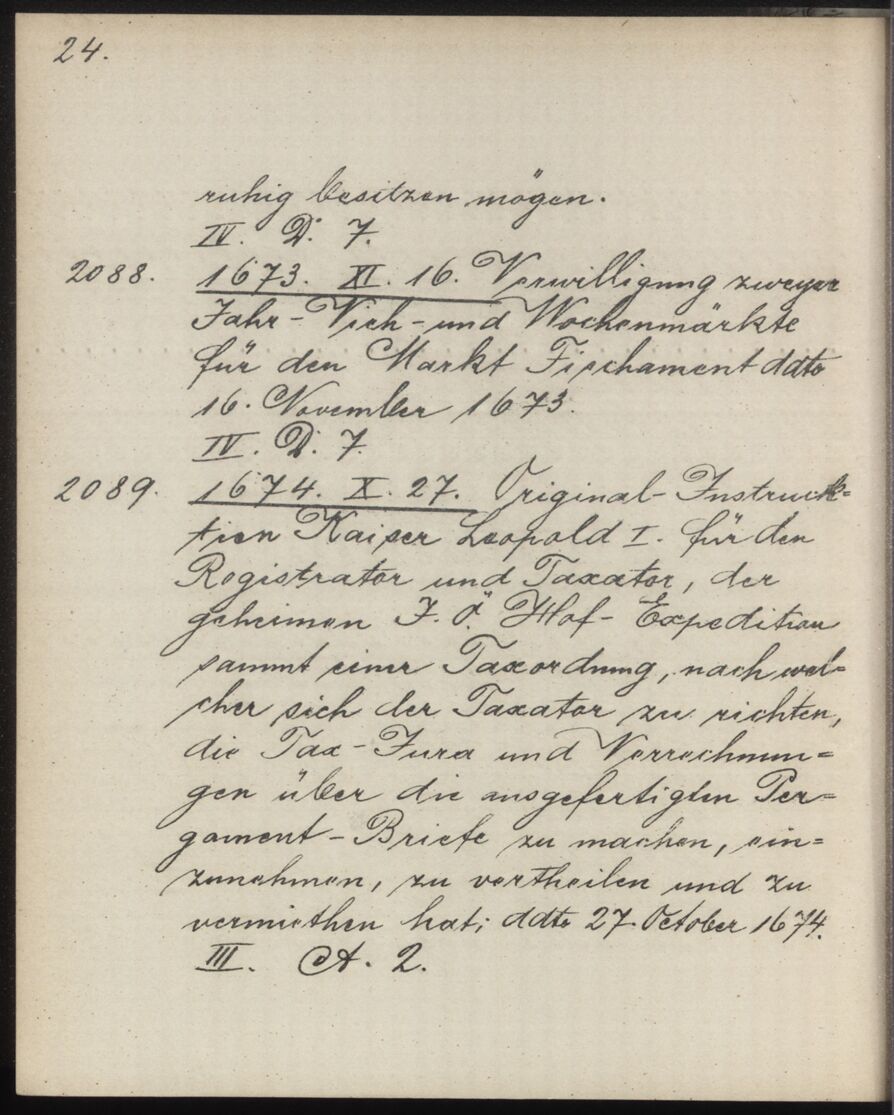 24.
ruhig besitzen mögen.
IV. D. 7.
2088. 1673. XI. 16. Verwilligung zweyer
Jahr- Vieh- und Wochenmärkte
für den Markt Fischament ddto
16. November 1673.
IV. D. 7.
2089. 1674. X. 27. Original- Instruck=
tion Kaiser Leopold I. für den
Registrator und Taxator, der
geheimen I. Ö. Hof- Expedition
sammt einer Taxordnung, nach wel=
cher sich der Taxator zu richten,
die Tax- Jura und Verrechnun=
gen über die ausgefertigten Per=
gament- Briefe zu machen, ein=
zunehmen, zu vertheilen und zu
vermiethen hat; ddto 27. October 1674.
III. A. 2.